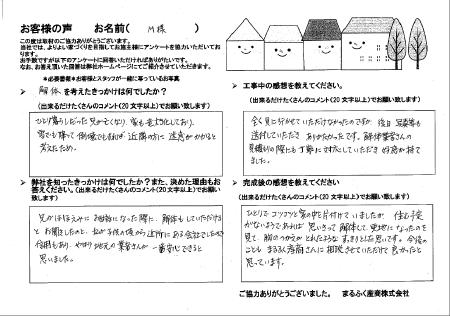 お客様の声　お名前（　M様　）
この度は取材のご協力ありがとうございます。
当社では、よりよい家づくりを目指してお施主様にアンケートを協力いただいております。
お手数ですが以下のアンケートに回答いただければありがたいです。
なお、お答え頂いた回答は弊社ホームページにてご紹介させていただきます。
＊必要書類＊お客様とスタッフが一緒に写っているお写真
➢ 解体を考えたきっかけは何でしたか？
（出来るだけたくさんのコメント（20文字以上）でお願い致します）
ひとり暮らしだった兄が亡くなり、家も老朽化しており、
家でも降って倒壊でもすれば近隣の方に迷惑がかかると
考えたため。
➢ 弊社を知ったきっかけは何でしたか？また、決めた理由もお
答えください。（出来るだけたくさんのコメント（20文字以上）でお願い
致します）
兄がほほえみにお世話になった際に、解体もしていただける
とお聞きしたのと、私が子供の頃から近所にある会社でしたので
信用もあり、やはり地元の業者さんが一番安心できると
思いました。
➢ 工事中の感想を教えてください。
（出来るだけたくさんのコメント（20文字以上）でお願い致します）
全く見に行かせていただけなかったのですが、後日写真等も
送付していただき ありがたかったです。解体業者さんの
見積りの際にも丁寧に対応していただき 好感が持て
ました。
➢ 完成後の感想を教えてください
（出来るだけたくさんのコメント（20文字以上）でお願い致します）
ひとりでコツコツと家の中を片付けていましたが、住む予定
がないようであれば 思いきって解体して更地になったのを
見て、胸のつかえがとれたようなすっきりとした思いです。今後の
ことも まるふく産商さんに相談させていただけて良かったと
思っています。
ご協力ありがとうございました。　まるふく産商株式会社